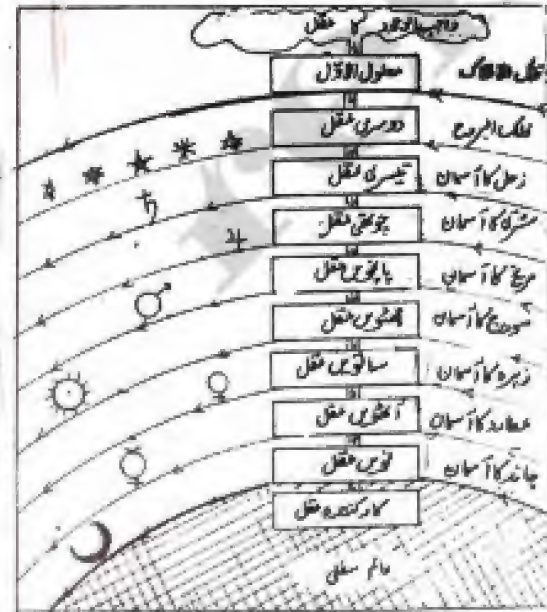 واجب الوجود کا عقل
معلول الاوّل
فلک الافلاک
دوسری عقل
فلک البروج
تیسری عقل
زحل کا آسمان
چوتھی عقل
مشتری کا آسمان
پانچویں عقل
مریخ کا آسمان
چھٹویں عقل
سورج کا آسمان
ساتویں عقل
زہرہ کا آسمان
آٹھویں عقل
عطارد کا آسمان
نویں عقل
چاند کا آسمان
کارکنندہ عقل
عالم سفلی